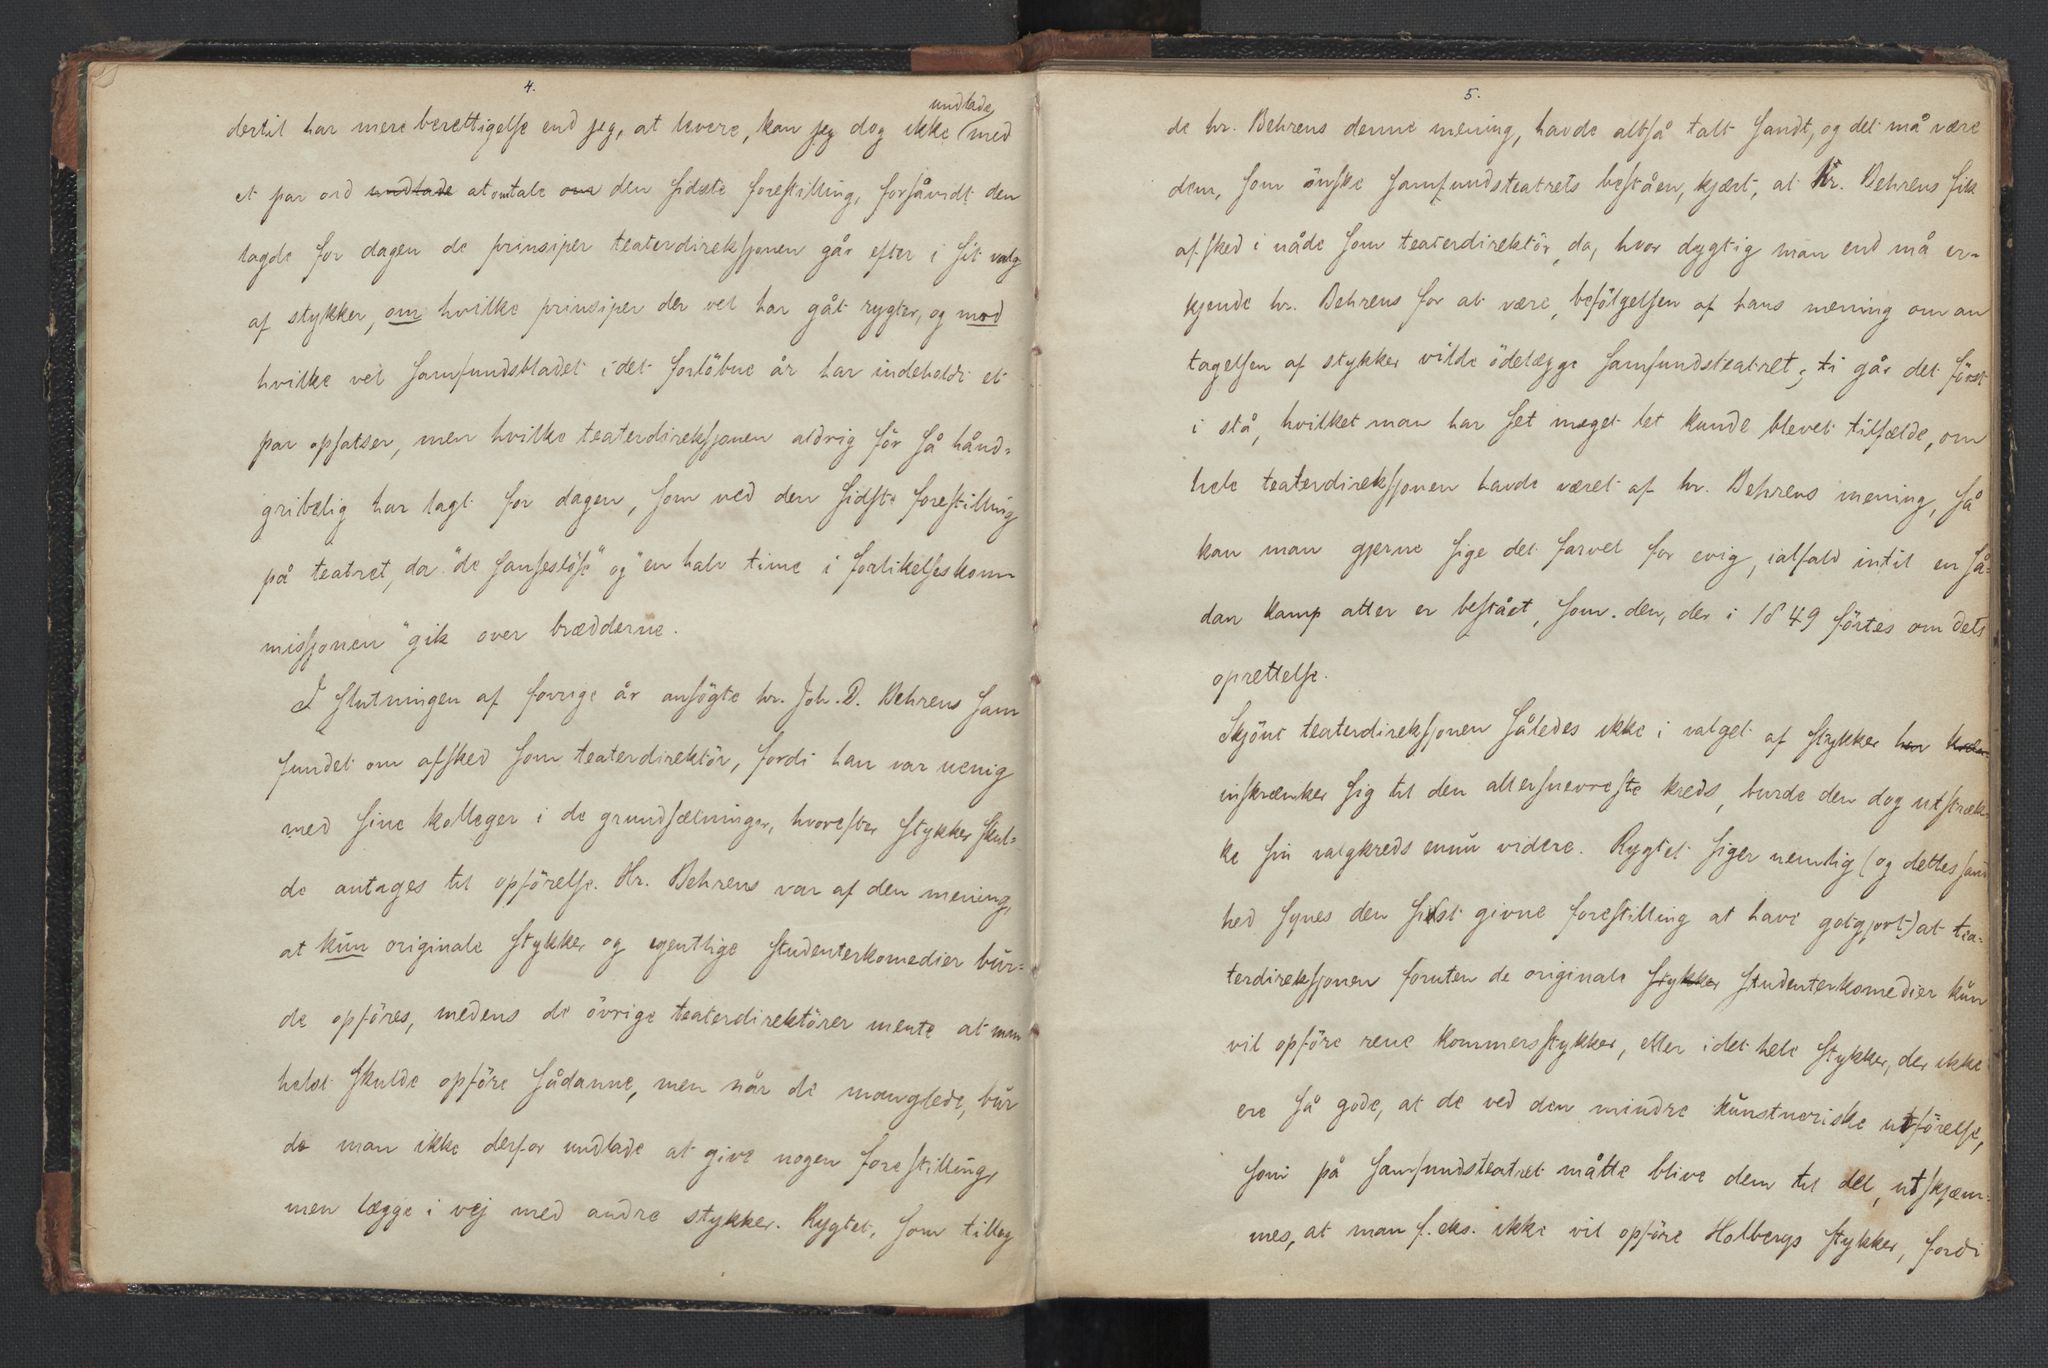 4.
dertil har mere berettigelse end jeg, at levere, kan jeg dog ikke undlade med
et par ord undlade at omtale om den sidste forestilling, forsåvidt den
lagde for dagen de prinsiper teaterdireksjonen går efter i sit valg
af stykker, om hvilke prinsiper der vel har gåt rygter, og mod
hvilke vel samfundsbladet i det forløbne år har indeholdt et
par opsatser, men hvilke teaterdireksjonen aldrig för så hånd-
gribelig har lagt for dagen, som ved den sidste forestilling
på teatret, da "de sanseslöse" og "en halv time i forlikelseskom-
missjonen" gik over brædderne.
I slutningen af forrige år ansögte hr. Joh. D. Behrens sam
fundet om afsked som teaterdirektör, fordi han var uenig
med sine kolleger i de grundsætninger, hvorefter stykker skul-
de antages til opförelse. Hr. Behrens var af den mening,
at kun originale stykker og egentlige studenterkomedier bur-
de opföres, medens de övrige teaterdirektörer mente at man
helst skulde opföre sådanne, men når de manglede, bur
de man ikke derfor undlade at give nogen forestilling,
men lægge i vej med andre stykker. Rygtet, som tillag
5.
de hr. Behrens denne mening, havde altså talt sandt, og det må være
dem, som önske samfundsteatrets beståen, kjært, at Hr. Behrens fik
afsked i nåde som teaterdirektör, da, hvor dygtig man end må er-
kjende hr. Behrens for at være, befölgelsen af hans mening om an
tagelsen af stykker vilde ödelægge samfundsteatret; ti går det först
i stå, hvilket man har set meget let kunde blevet tilfælde, om
hele teaterdireksjonen havde været af hr. Behrens mening, så
kan man gjerne sige det farvel for evig, ialfald intil en så-
dan kamp atter er bestået, som den, der i 1849 förtes om dets
oprettelse.
Skjönt teaterdireksjonen således ikke i valget af stykker har
inskrænker sig til den allersnevreste kreds, burde den dog utstræk-
ke sin valgkreds ennu videre. Rygtet siger nemlig (og dettes sand
hed synes den sidst givne forestilling at have gotgjort) at tea-
terdireksjonen foruten de originale stykker studenterkomedier kun
vil opföre rene kommersstykker, eller i det hele stykker, der ikke
ere så gode, at de ved den mindre kunstneriske utförelse,
som på samfundsteatret måtte blive dem til del, utskjæm-
mes, at man f. eks. ikke vil opföre Holbergs stykker, fordi